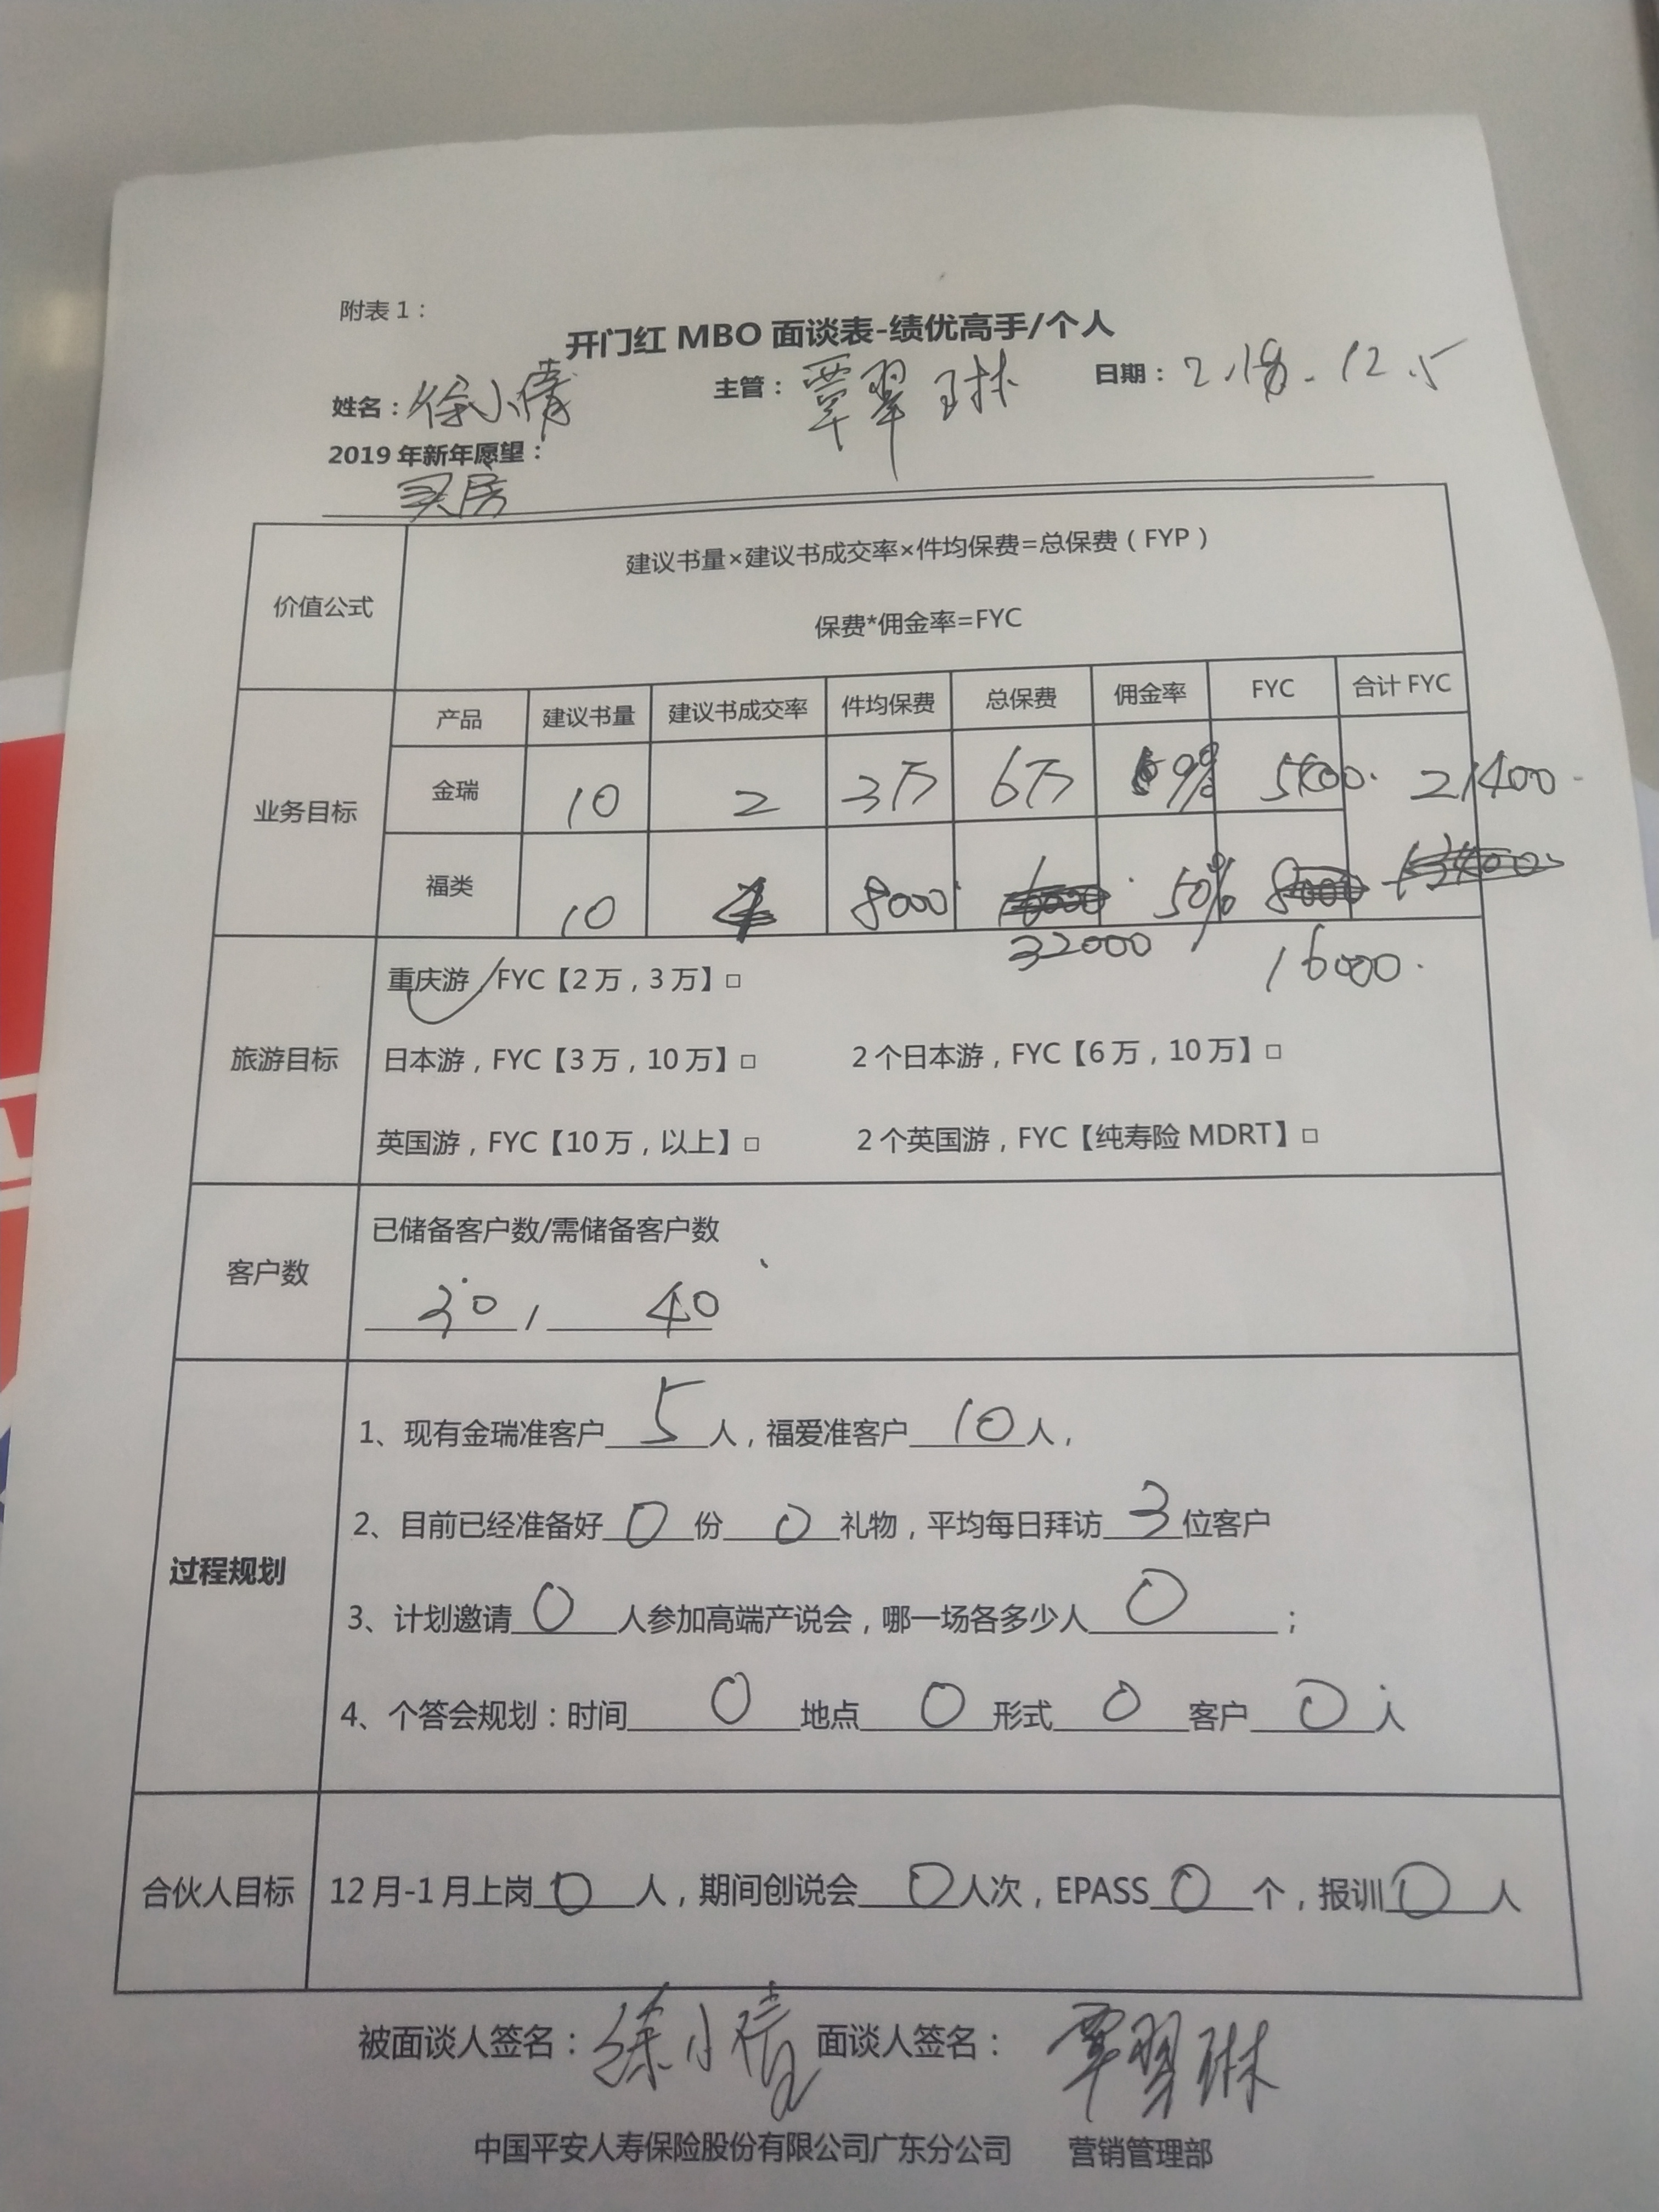 附表1：
开门红 MBO 面谈表-绩优高手/个人
姓名：徐小倩 主管：覃翠琳 日期：2.18.12.5
2019年新年愿望：
买房
价值公式
建议书量×建议书成交率×件均保费=总保费（FYP）
保费*佣金率=FYC
业务目标
产品 建议书量 建议书成交率 件均保费 总保费 佣金率 FYC 合计 FYC
金瑞 10 2 3万 6万 9% 5400. 21400
福类 10 4 8000 32000 50% 16000.
旅游目标
重庆游，FYC【2万，3万】□
日本游，FYC【3万，10万】□ 2个日本游，FYC【6万，10万】□
英国游，FYC【10万，以上】□ 2个英国游，FYC【纯寿险 MDRT】□
客户数
已储备客户数/需储备客户数
30 / 40
过程规划
1、现有金瑞准客户5人，福爱准客户10人，
2、目前已经准备好0份0礼物，平均每日拜访3位客户
3、计划邀请0人参加高端产说会，哪一场各多少人0；
4、个答会规划：时间0地点0形式0客户0人
合伙人目标
12月-1月上岗0人，期间创说会0人次，EPASS0个，报训0人
被面谈人签名：徐小倩 面谈人签名：覃翠琳
中国平安人寿保险股份有限公司广东分公司 营销管理部